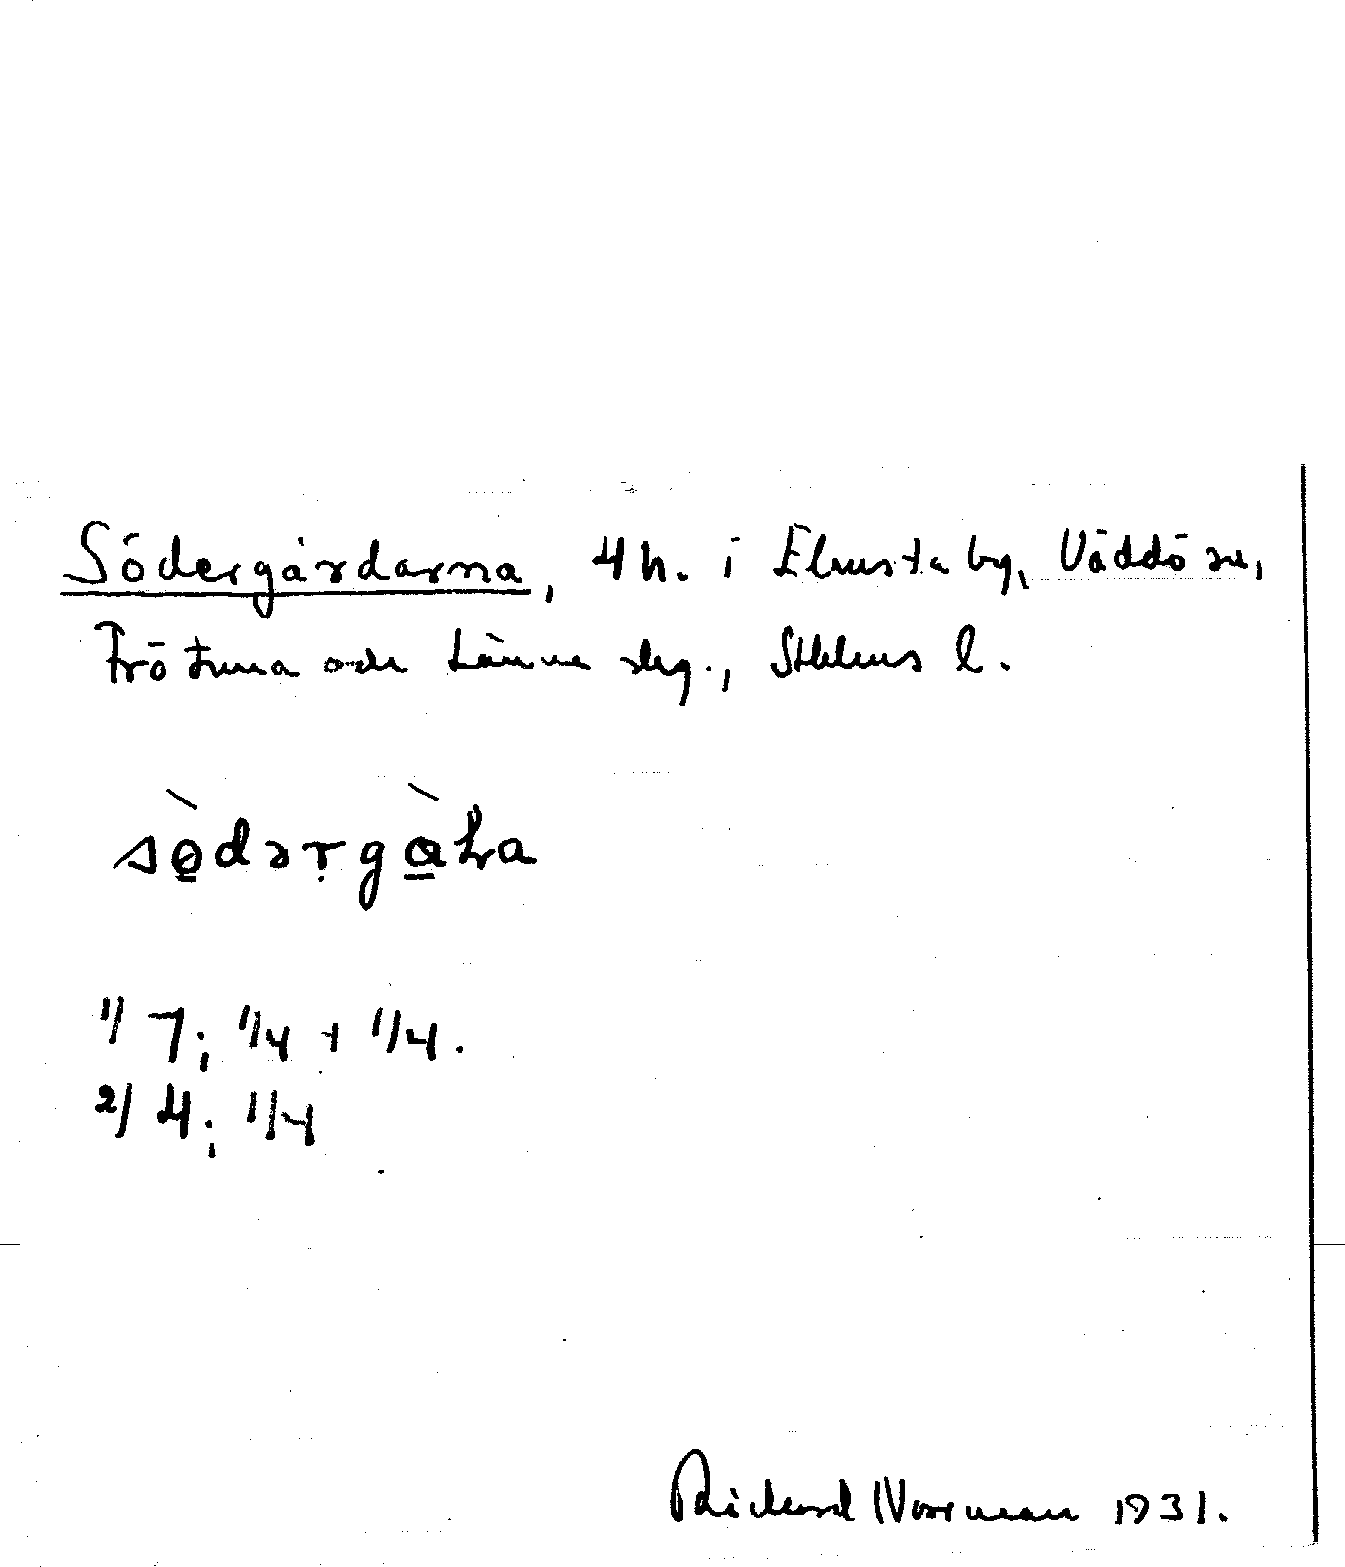 Södergårdarna, 4 h. i Elmsta by, Väddö sn,
Frötuna och Länna skg., Sthlms l.
sø̀dərgɑ̀ɳa
1/ 7; 1/4 + 1/4.
2/ 4; 1/4
Rickard Norrman 1931.